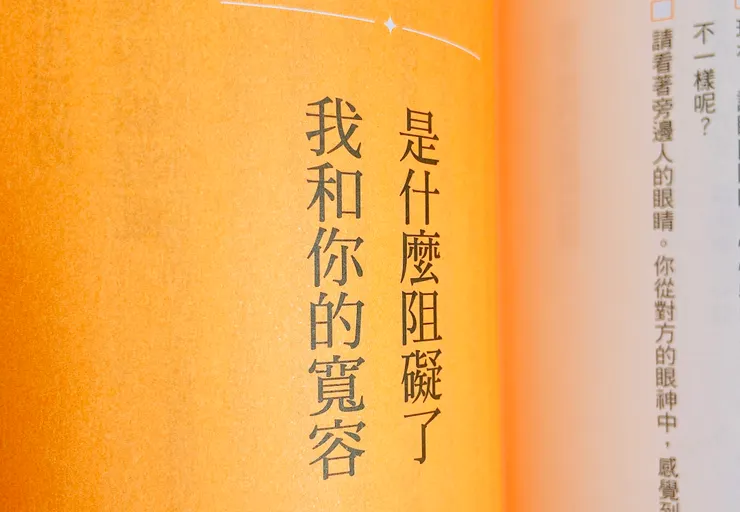 不一樣呢？
請看著旁邊人的眼睛。你從對方的眼神中，感覺到
是什麼阻礙了
我和你的寬容